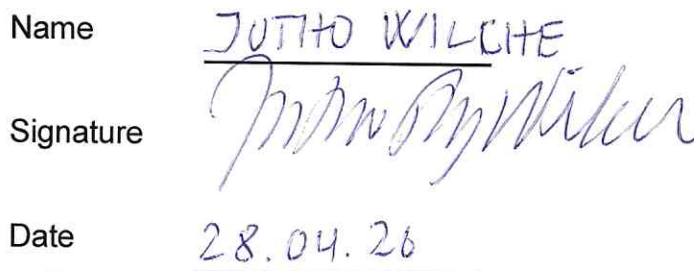 Name JUTHO WILCHE
Signature
Date 28.04.26